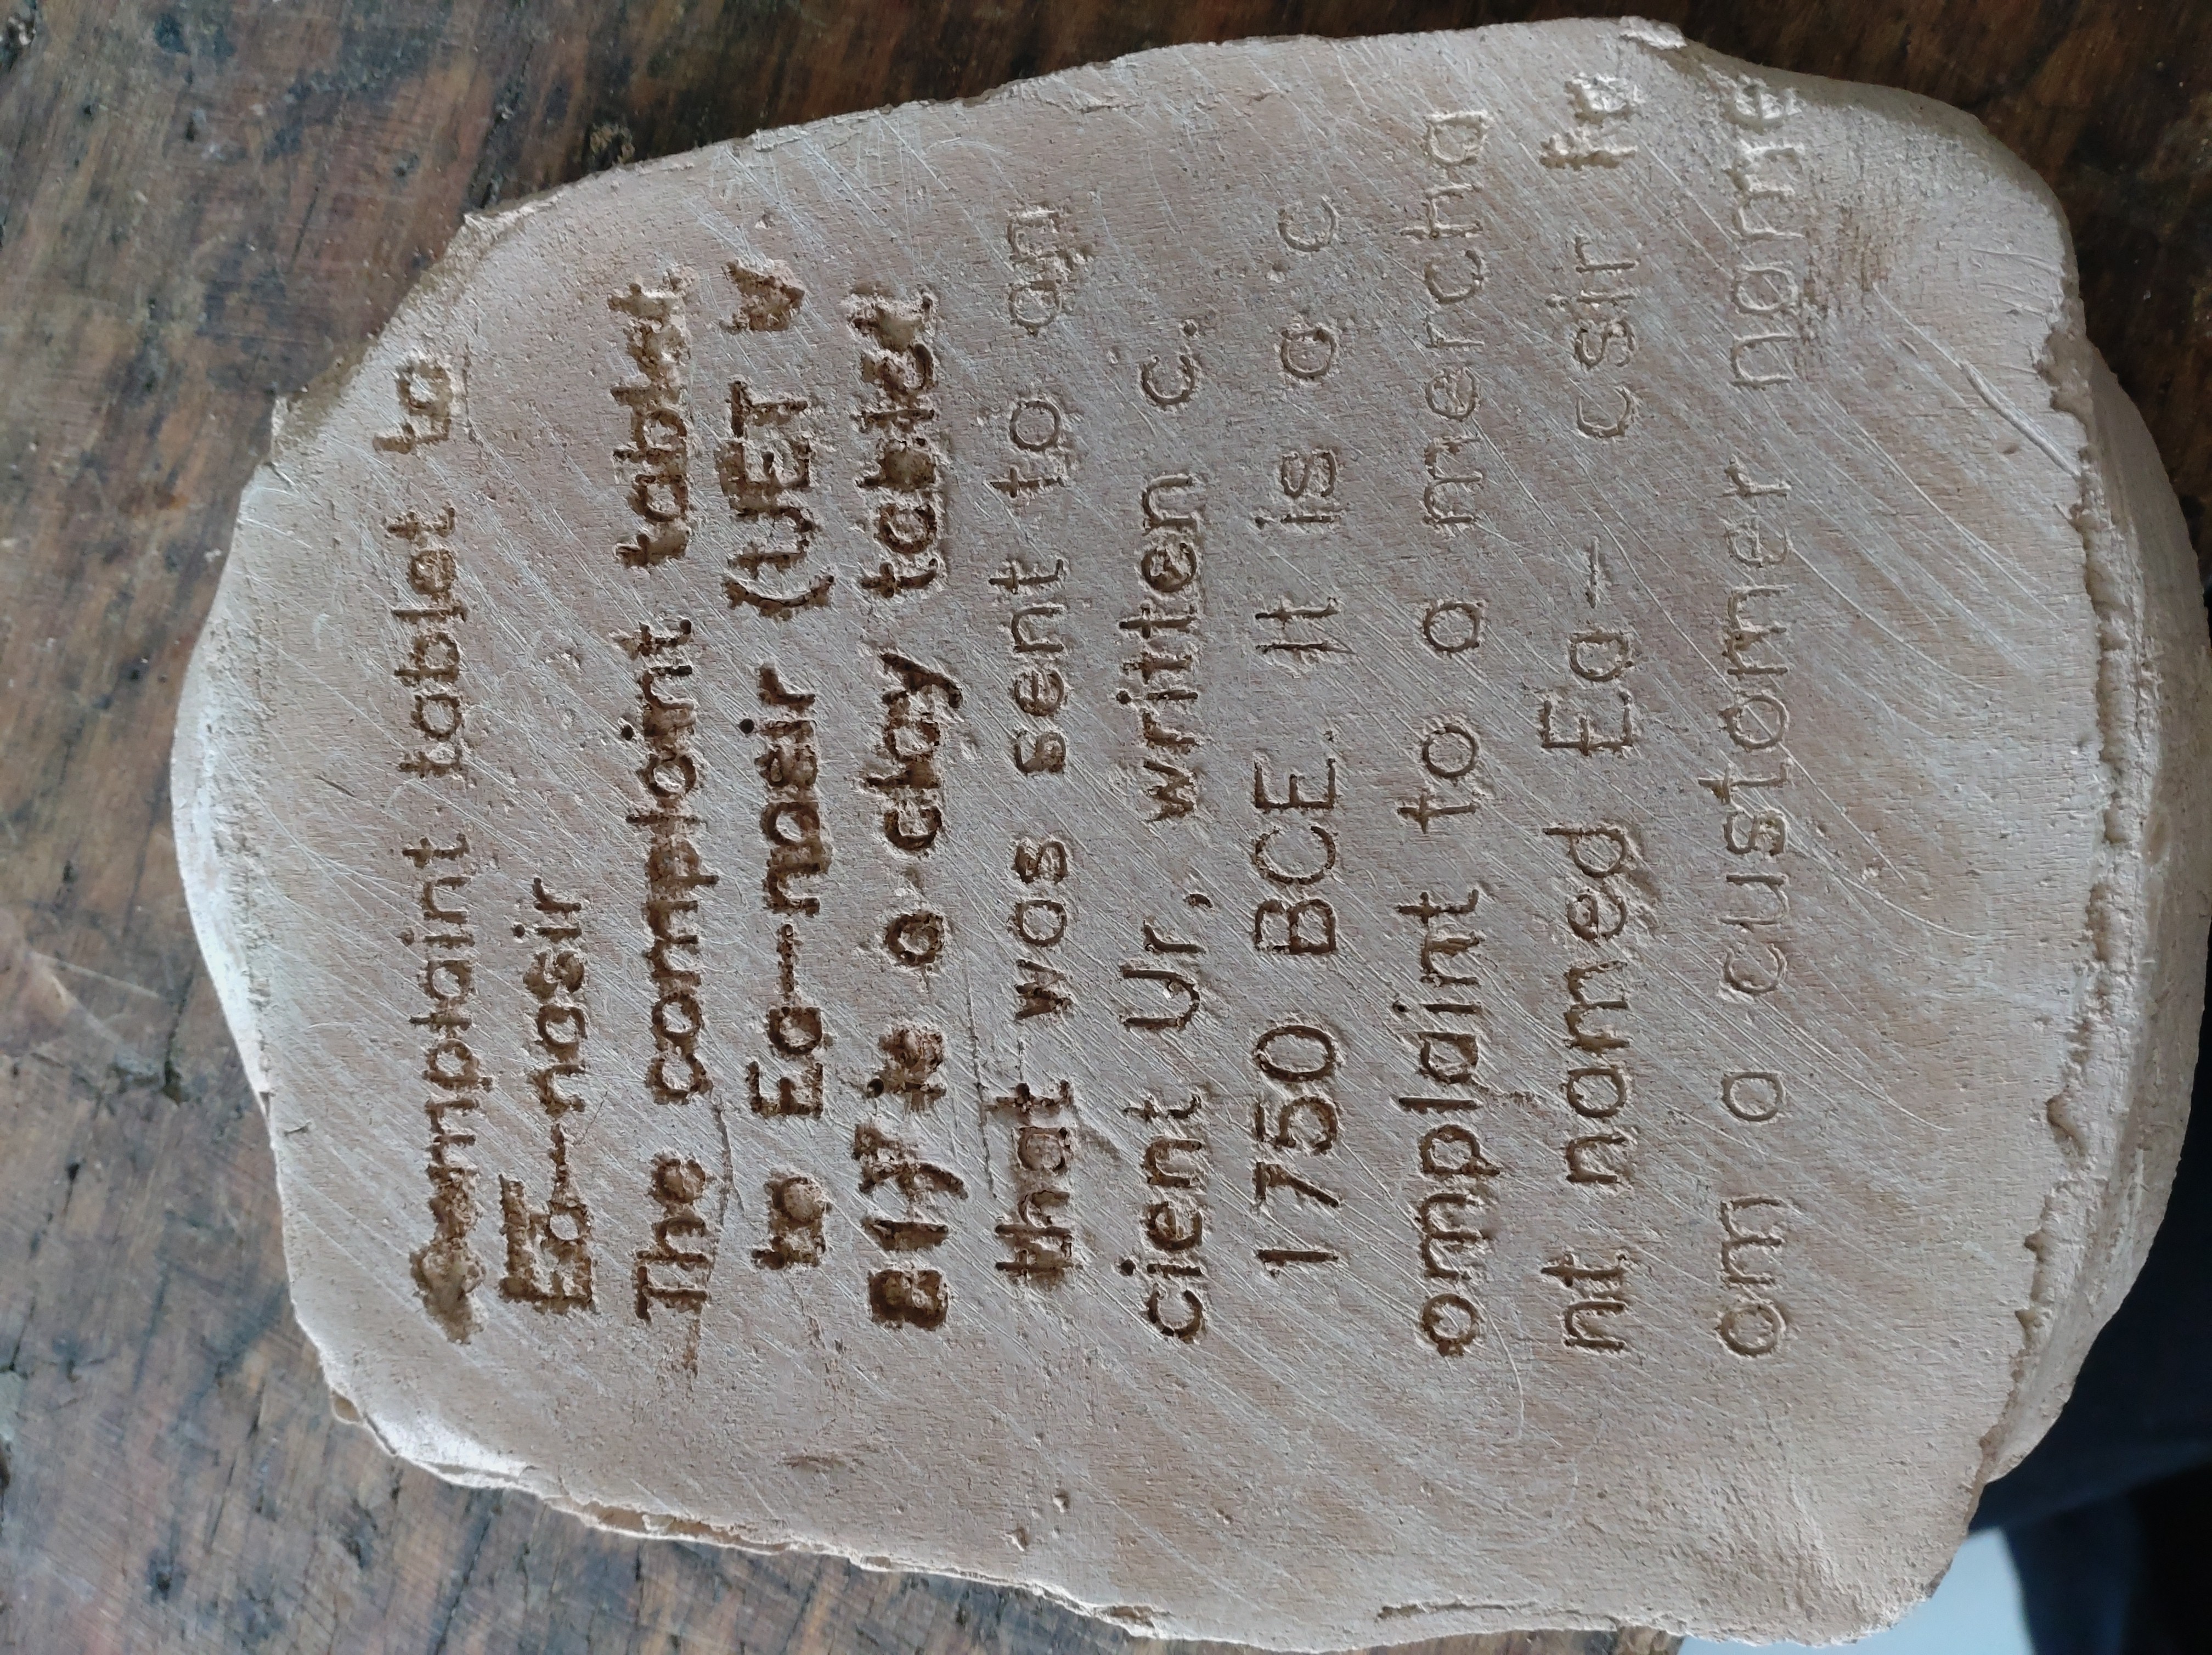 Complaint tablet to
Ea-nasir
The complaint tablet
to Ea-nasir (UET V
81) is a clay tablet
that was sent to an
cient Ur, written c.
1750 BCE. It is a c
omplaint to a mercha
nt named Ea- csir fr
om a customer name